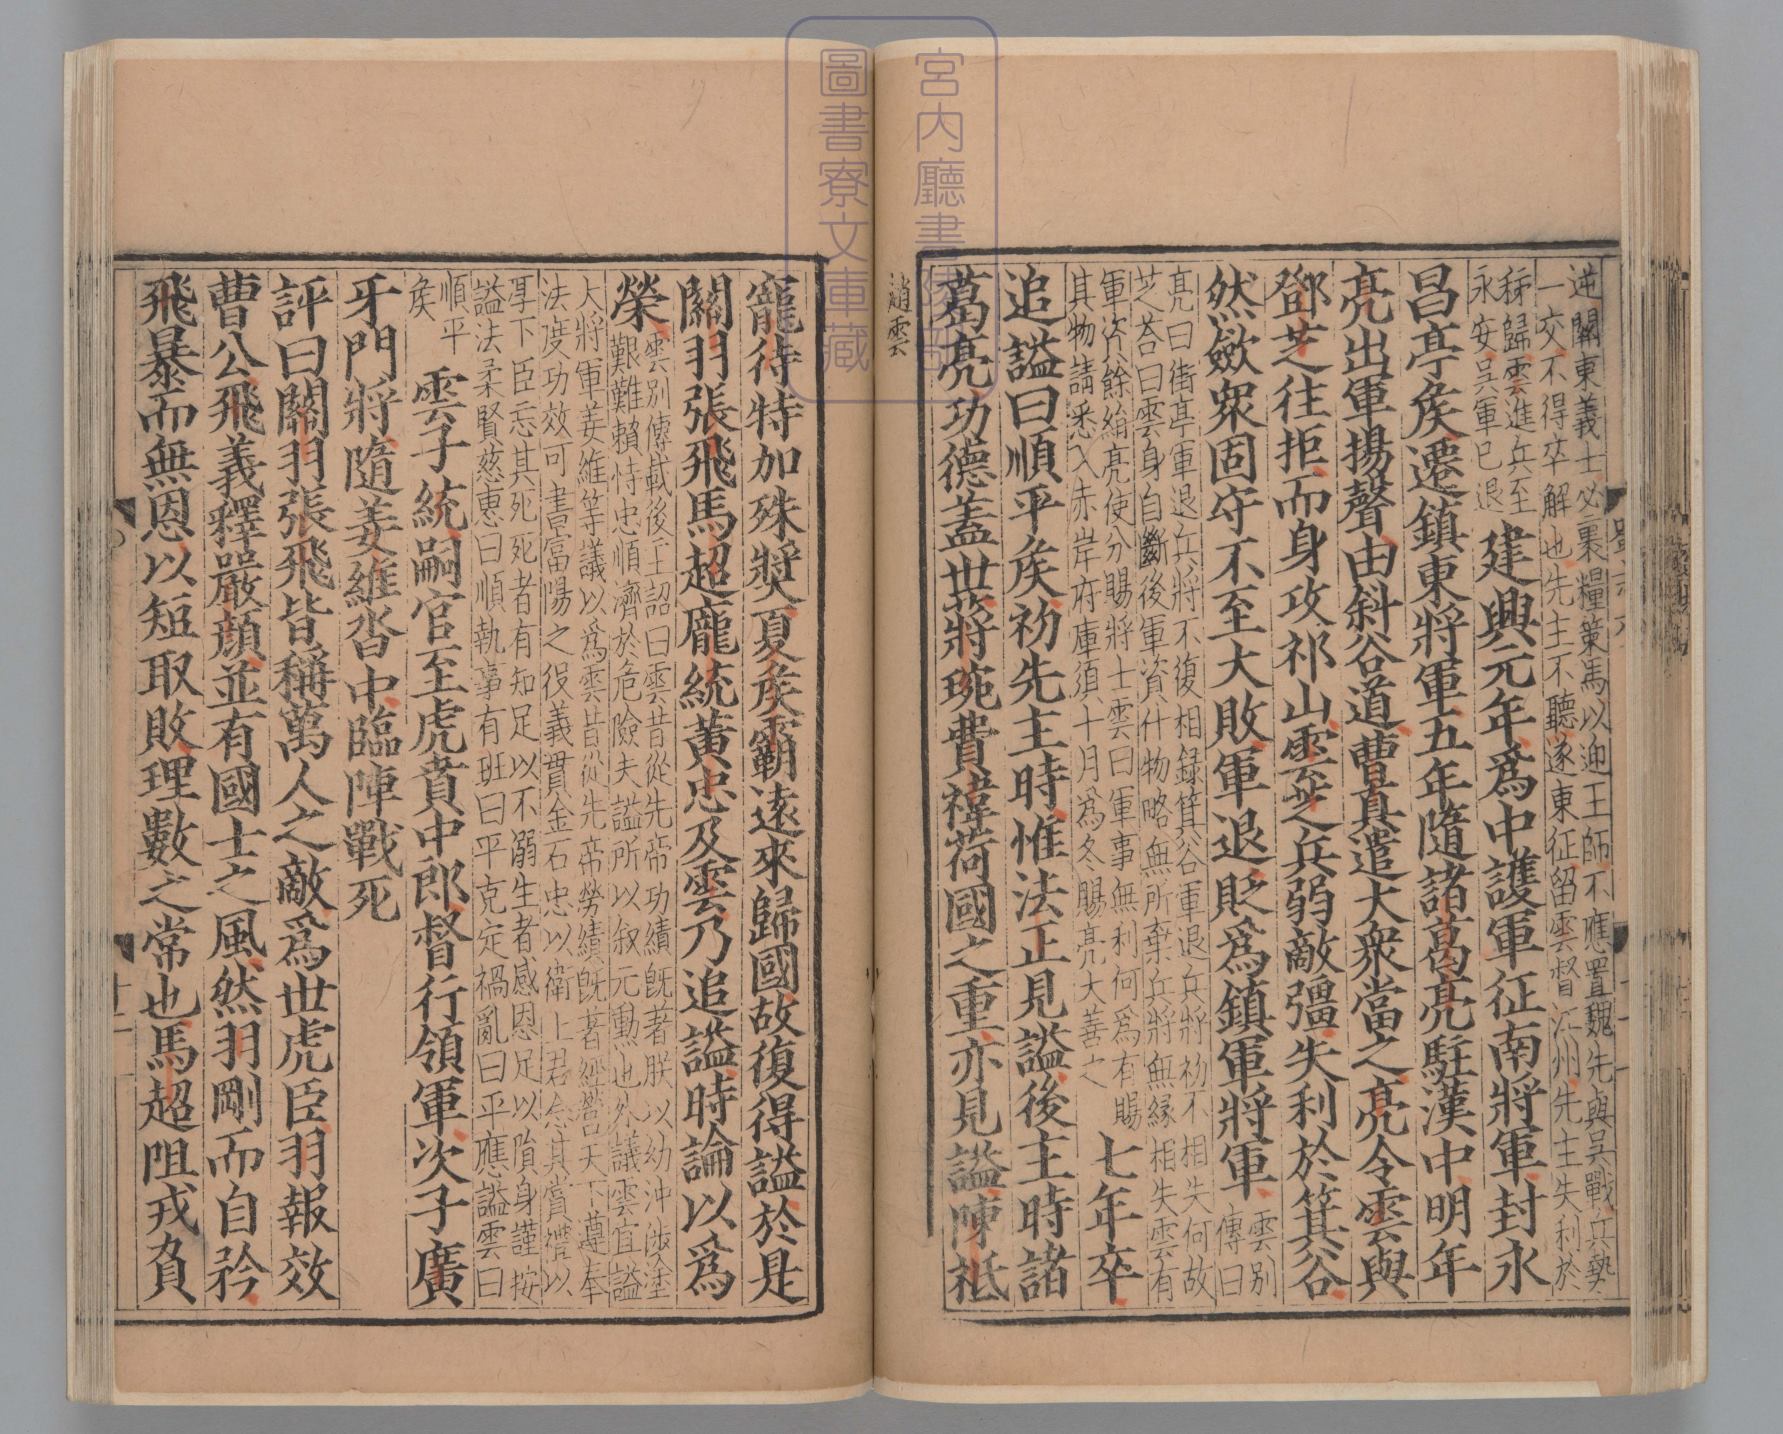 逆關東義士必裹糧策馬以迎王師不應置魏先與吳戰兵勢
一交不得卒解也先主不聽遂東征留雲督江州先主失利於
秭歸雲進兵至
永安吳軍已退
建興元年爲中護軍征南將軍封永
昌亭侯遷鎮東將軍五年隨諸葛亮駐漢中明年
亮出軍揚聲由斜谷道曹真遣大衆當之亮令雲與
鄧芝往拒而身攻祁山雲芝兵弱敵彊失利於箕谷
然斂衆固守不至大敗軍退貶爲鎮軍將軍
雲別
傳曰
亮曰街亭軍退兵將不復相録箕谷軍退兵將初不相失何故
芝荅曰雲身自斷後軍資什物略無所棄兵將無緣相失雲有
軍資餘絹亮使分賜將士雲曰軍事無利何爲有賜
其物請悉入赤岸府庫須十月爲冬賜亮大善之
七年卒
追謚曰順平侯初先主時惟法正見謚後主時諸
葛亮功德蓋世蔣琬費禕荷國之重亦見謚陳祗
趙雲
寵待特加殊獎夏侯霸遠來歸國故復得謚於是
關羽張飛馬超龐統黃忠及雲乃追謚時論以爲
榮
雲別傳載後主詔曰雲昔從先帝功績旣著朕以幼沖涉塗
艱難賴恃忠順濟於危險夫謚所以叙元勳也外議雲宜謚
大將軍姜維等議以爲雲昔從先帝勞績旣著經營天下遵奉
法度功效可書當陽之役義貫金石忠以衛上君念其賞禮以
厚下臣忘其死死者有知足以不溺生者感恩足以隕身謹按
謚法柔賢慈惠曰順執事有班曰平克定禍亂曰平應謚雲曰
順平
侯
雲子統嗣官至虎賁中郎督行領軍次子廣
牙門將隨姜維沓中臨陣戰死
評曰關羽張飛皆稱萬人之敵爲世虎臣羽報效
曹公飛義釋嚴顏並有國士之風然羽剛而自矜
飛暴而無恩以短取敗理數之常也馬超阻戎負
十二
宮内廳書陵部
圖書寮文庫藏